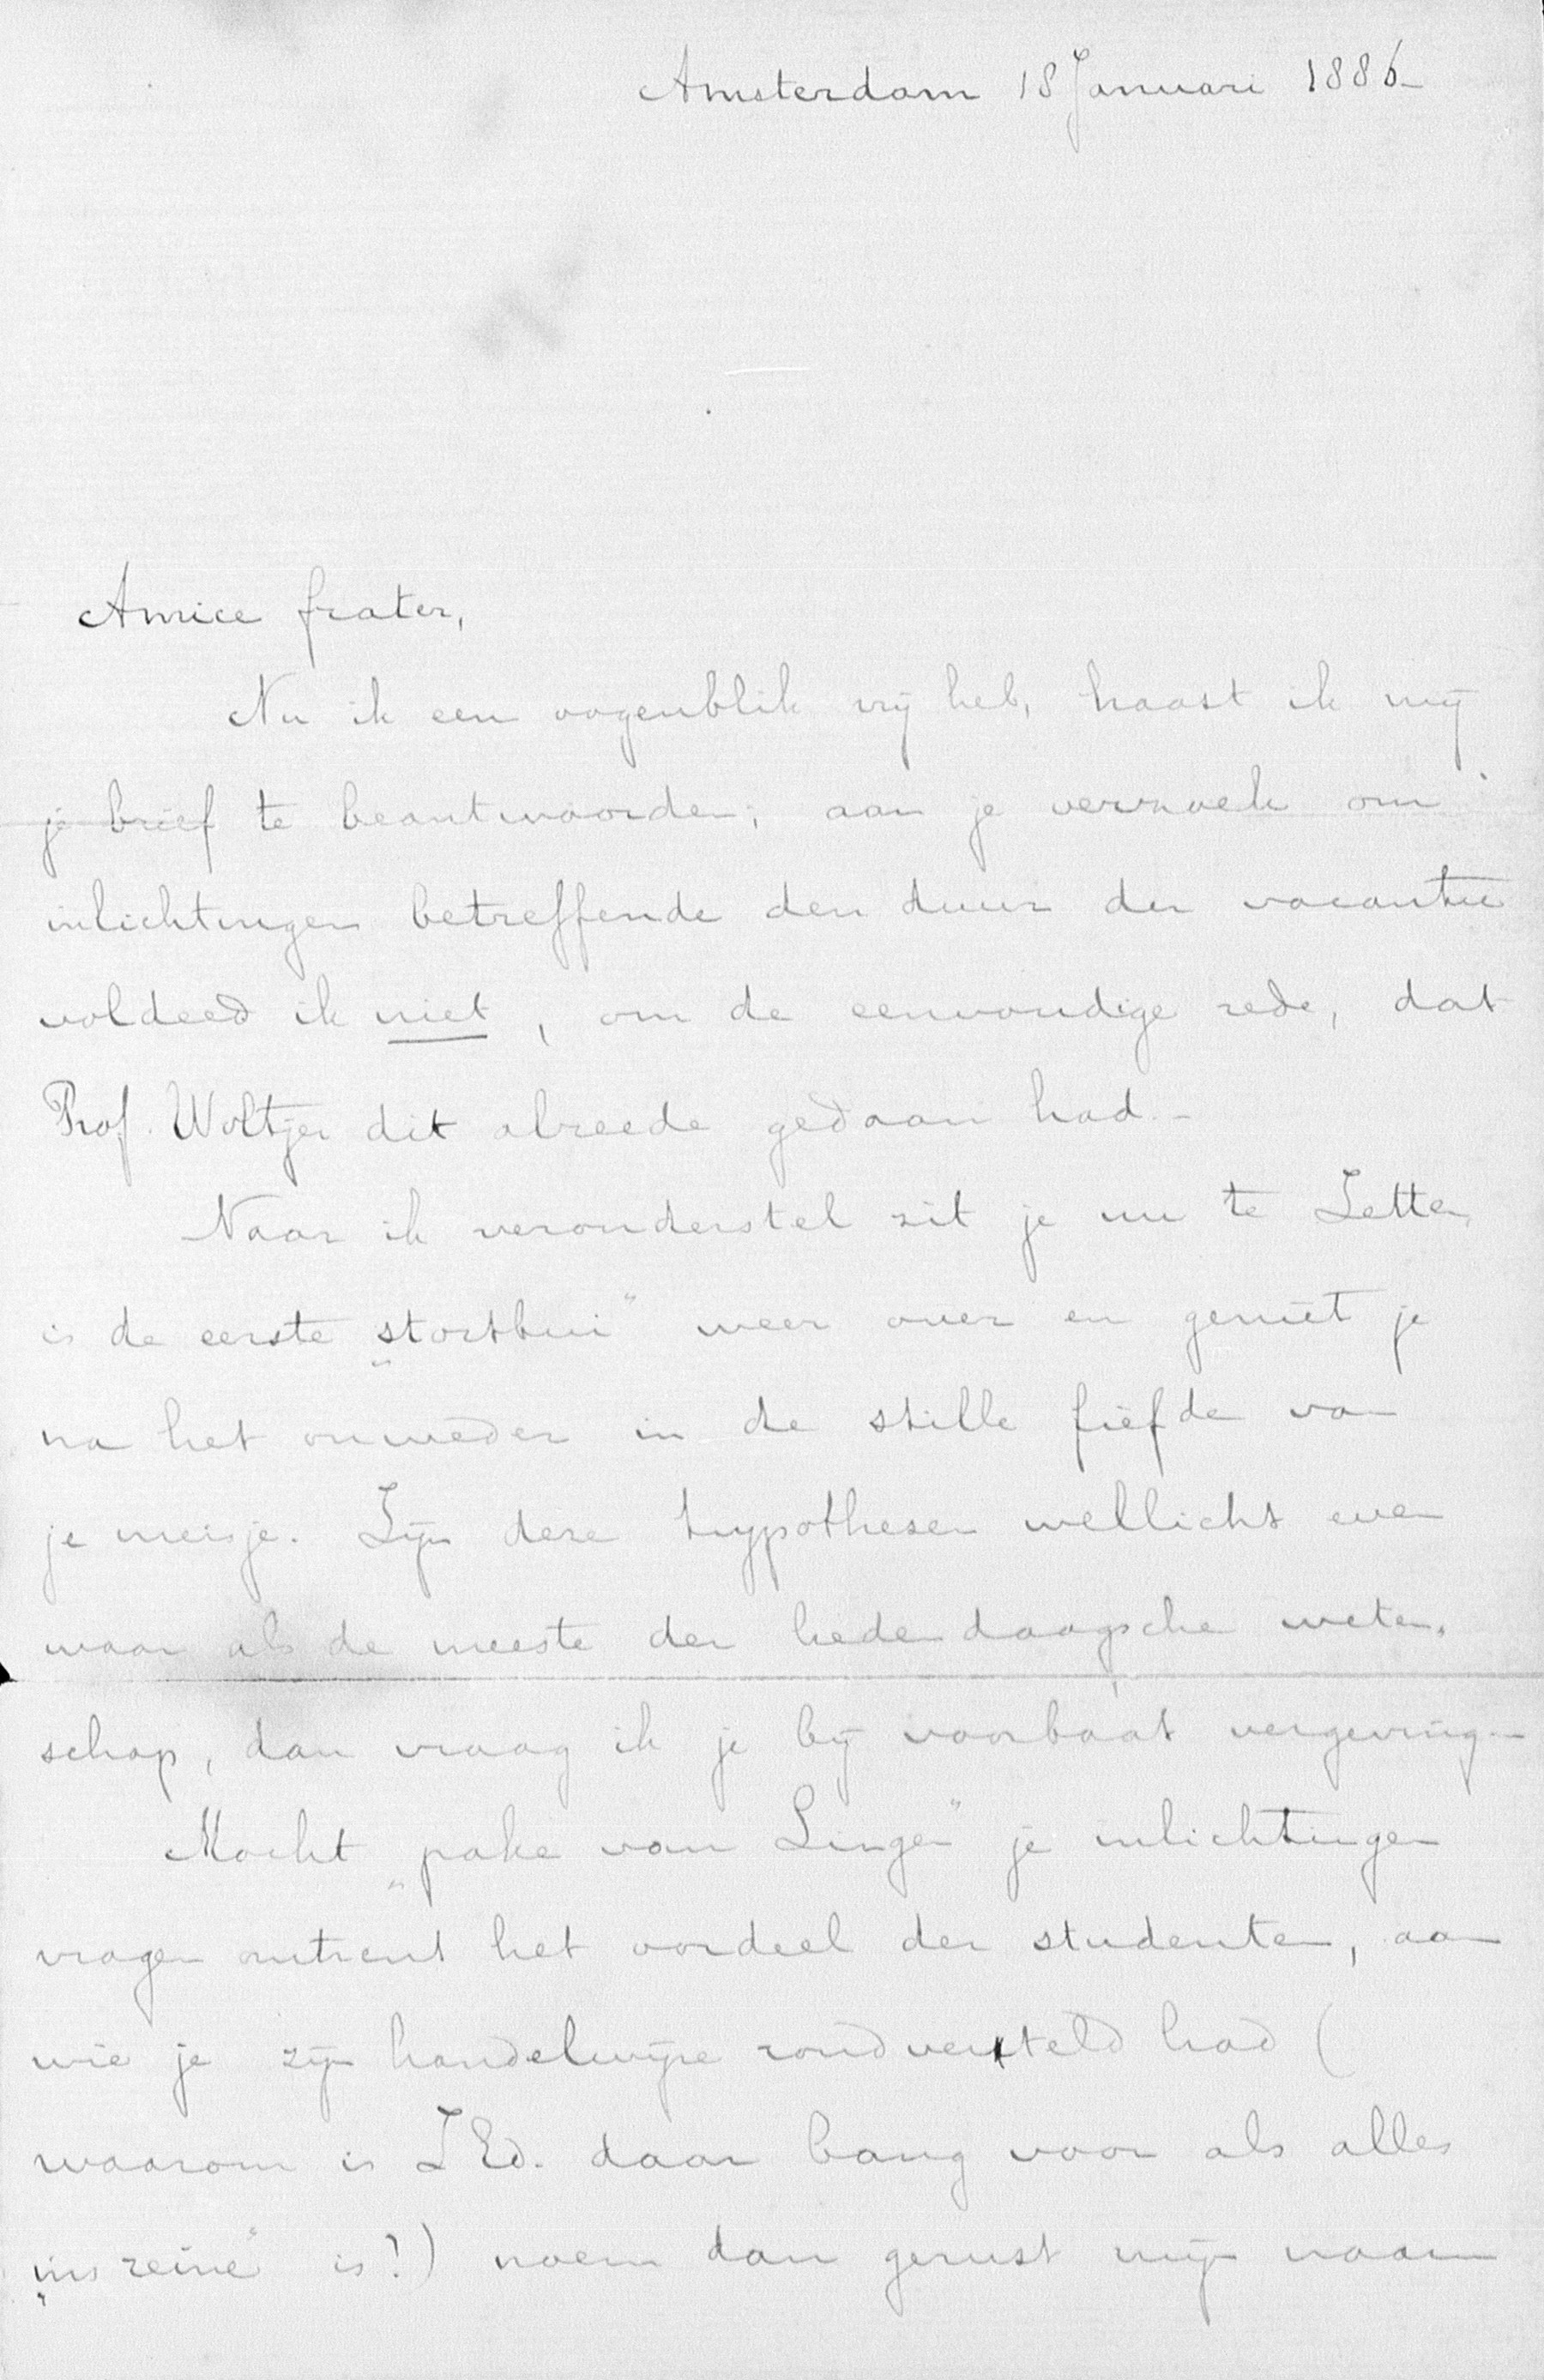 Amsterdam 18 Januari 1886
Amice frater,
Nu ik een oogenblik vrij heb, haast ik mij
je brief te beantwoorden; aan je verzoek om
inlichtingen betreffende den duur der vacantie
voldeed ik niet, om de eenvoudige rede, dat
Prof. Woltjer dit alreede gedaan had.-
Naar ik veronderstel zit je nu te Zetten,
is de eerste „stortbui" weer over en geniet je
na het onweder in de stille liefde van
je meisje. Zijn deze hypothesen wellicht even
waar als de meeste der hedendaagsche weten-
schap, dan vraag ik je bij voorbaat vergeving.-
Mocht „pake van Lingen" je inlichtingen
vragen omtrent het oordeel der studenten, aan
wie je zijn handelwijze rondverteld had (
waarom is ZEd. daar bang voor als alles
„ins reine" is?) noem dan gerust mijn naam